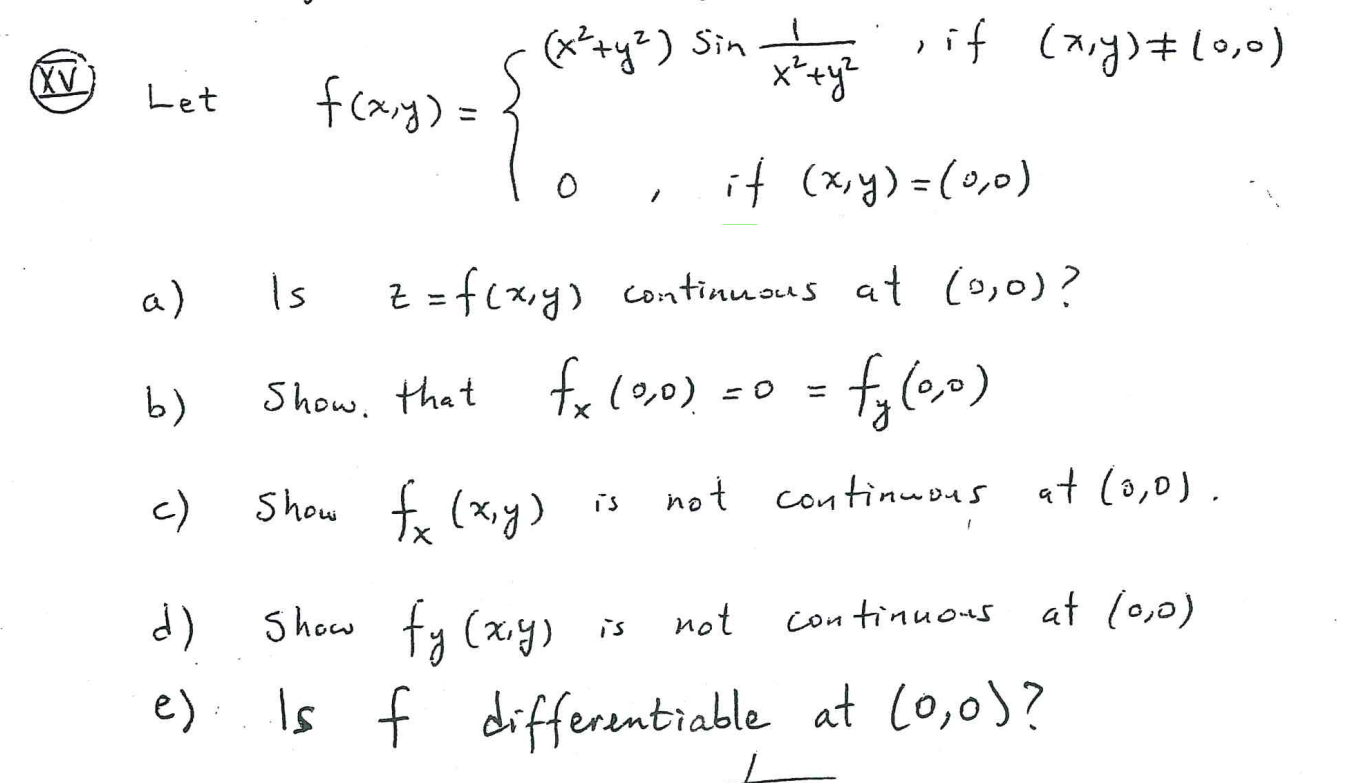 XV Let f(x,y) = { (x²+y²) sin 1/(x²+y²) , if (x,y) ≠ (0,0)
0 , if (x,y) = (0,0)
a) Is z = f(x,y) continuous at (0,0)?
b) Show. that fₓ (0,0) = 0 = f_y (0,0)
c) Show fₓ (x,y) is not continuous at (0,0).
d) Show f_y (x,y) is not continuous at (0,0)
e) Is f differentiable at (0,0)?